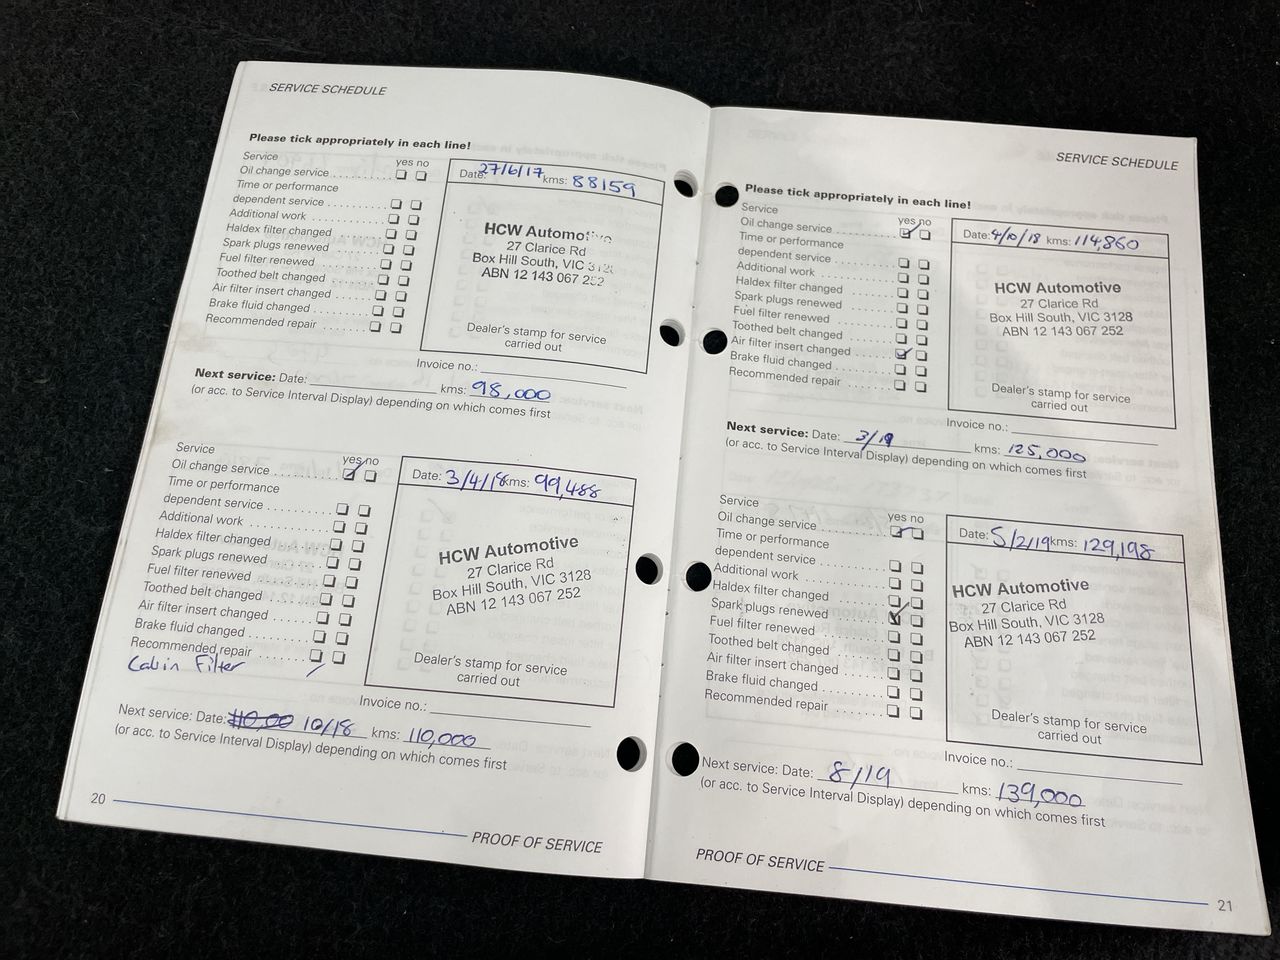 SERVICE SCHEDULE
Please tick appropriately in each line!
Service yes no
Oil change service
Time or performance
dependent service
Additional work
Haldex filter changed
Spark plugs renewed
Fuel filter renewed
Toothed belt changed
Air filter insert changed
Brake fluid changed
Recommended repair
Date: 27/6/17 kms: 88159
HCW Automotive
27 Clarice Rd
Box Hill South, VIC 3128
ABN 12 143 067 252
Dealer's stamp for service
carried out
Invoice no.:
Next service: Date: kms: 98,000
(or acc. to Service Interval Display) depending on which comes first
Service yes no
Oil change service
Time or performance
dependent service
Additional work
Haldex filter changed
Spark plugs renewed
Fuel filter renewed
Toothed belt changed
Air filter insert changed
Brake fluid changed
Recommended repair
Cabin Filter
Date: 3/4/18 kms: 99,488
HCW Automotive
27 Clarice Rd
Box Hill South, VIC 3128
ABN 12 143 067 252
Dealer's stamp for service
carried out
Invoice no.:
Next service: Date: 10/18 kms: 110,000
(or acc. to Service Interval Display) depending on which comes first
20
PROOF OF SERVICE
SERVICE SCHEDULE
Please tick appropriately in each line!
Service yes no
Oil change service
Time or performance
dependent service
Additional work
Haldex filter changed
Spark plugs renewed
Fuel filter renewed
Toothed belt changed
Air filter insert changed
Brake fluid changed
Recommended repair
Date: 4/10/18 kms: 114,860
HCW Automotive
27 Clarice Rd
Box Hill South, VIC 3128
ABN 12 143 067 252
Dealer's stamp for service
carried out
Invoice no.:
Next service: Date: 3/19 kms: 125,000
(or acc. to Service Interval Display) depending on which comes first
Service yes no
Oil change service
Time or performance
dependent service
Additional work
Haldex filter changed
Spark plugs renewed
Fuel filter renewed
Toothed belt changed
Air filter insert changed
Brake fluid changed
Recommended repair
Date: 5/2/19 kms: 129,198
HCW Automotive
27 Clarice Rd
Box Hill South, VIC 3128
ABN 12 143 067 252
Dealer's stamp for service
carried out
Invoice no.:
Next service: Date: 8/19 kms: 139,000
(or acc. to Service Interval Display) depending on which comes first
PROOF OF SERVICE
21